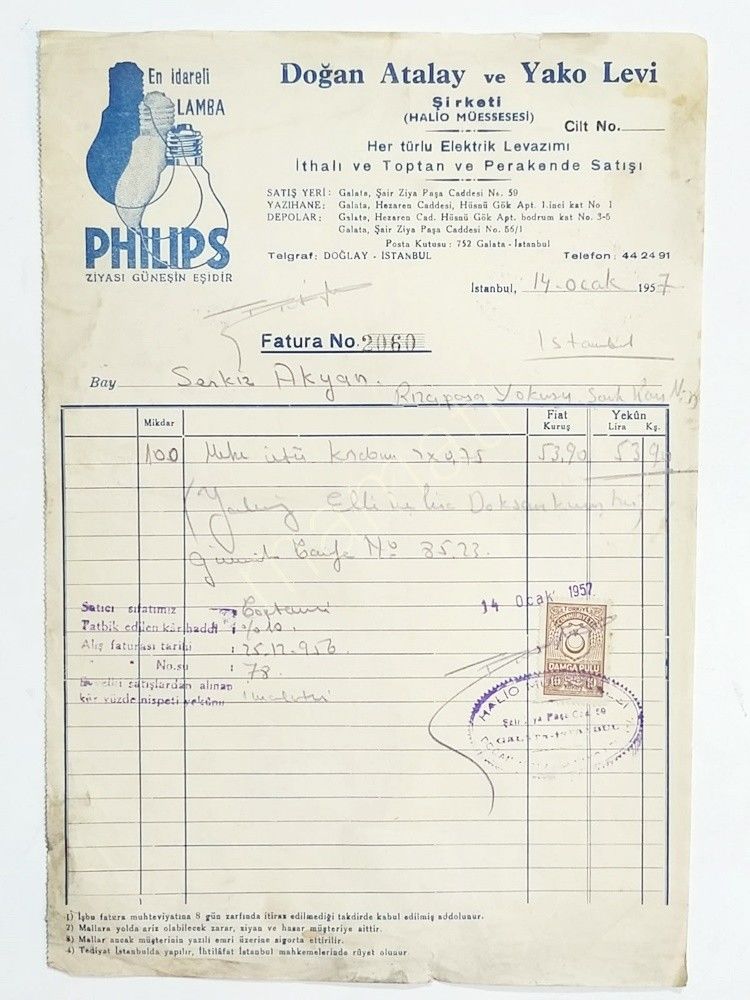 En idareli
LAMBA
PHILIPS
ZİYASI GÜNEŞİN EŞİDİR
Doğan Atalay ve Yako Levi
Şirketi
(HALİO MÜESSESESİ)
Cilt No.
Her türlu Elektrik Levazımı
İthalı ve Toptan ve Perakende Satışı
SATIŞ YERİ: Galata, Şair Ziya Paşa Caddesi No. 59
YAZIHANE: Galata, Hezaren Caddesi, Hüsnü Gök Apt. 1.inci kat No 1
DEPOLAR: Galata, Hezaren Cad. Hüsnü Gök Apt. bodrum kat No. 3-5
Galata, Şair Ziya Paşa Caddesi No. 56/1
Posta Kutusu: 752 Galata - İstanbul
Telgraf: DOĞLAY - İSTANBUL Telefon: 44 24 91
İstanbul, 14-Ocak 1957
Fatura No. 2060
İstanbul
Bay Serkiz Akyan.
Rızapaşa Yokuşu
Mikdar Fiat Kuruş Yekûn Lira Kş.
100 ütü kordonu 2x0,75 53,90 53,90
Elli üç lira Doksan kuruştur)
No 3523.
14 Ocak 1957
Satıcı sıfatımız : Toptancı
Tatbik edilen kâr haddi : %10
Alış faturası tarihi : 25.12.956
" " No.su : 78
satışlardan alınan
kâr yüzde nispeti yekûnu imalatçı
TÜRKİYE
CUMHURİYETİ
DAMGA PULU
HALİO
Şair Ziya Paşa Cad. 59
GALATA-İSTANBUL
1) İşbu fatura muhteviyatına 8 gün zarfında itiraz edilmediği takdirde kabul edilmiş addolunur.
2) Mallara yolda arız olabilecek zarar, ziyan ve hasar müşteriye aittir.
3) Mallar ancak müşterinin yazılı emri üzerine sigorta ettirilir.
4) Tediyat İstanbulda yapılır, İhtilâfat İstanbul mahkemelerinde rüyet olunur.